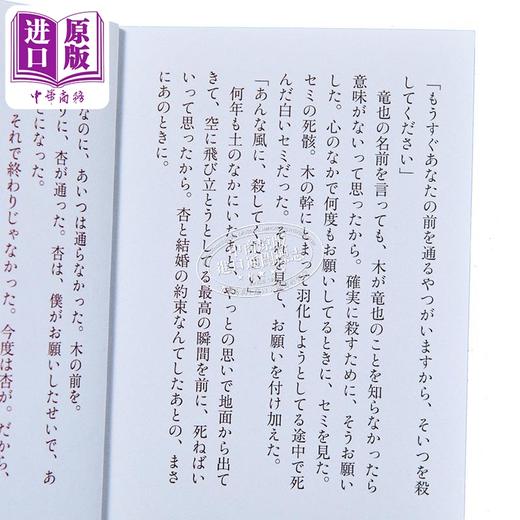 原版
进口
中華商務
「もうすぐあなたの前を通るやつがいますから、そいつを殺
してください」
竜也の名前を言っても、木が竜也のことを知らなかったら
意味がないって思ったから。確実に殺すために、そうお願い
した。心のなかで何度もお願いしてるときに、セミを見た。
セミの死骸。木の幹にとまって羽化しようとしてる途中で死
んだ白いセミだった。それを見て、お願いを付け加えた。
「あんな風に、殺してください」
何年も土のなかにいたあと、やっとの思いで地面から出て
きて、空に飛び立とうとしてる最高の瞬間を前に、死ねばい
いって思ったから。杏と結婚の約束なんてしたあとの、まさ
にあのときに。
なのに、あいつは通らなかった。木の前を。
りに、杏が通った。杏は、僕がお願いしたせいで、あ
になった。
それで終わりじゃなかった。今度は杏が。だから、